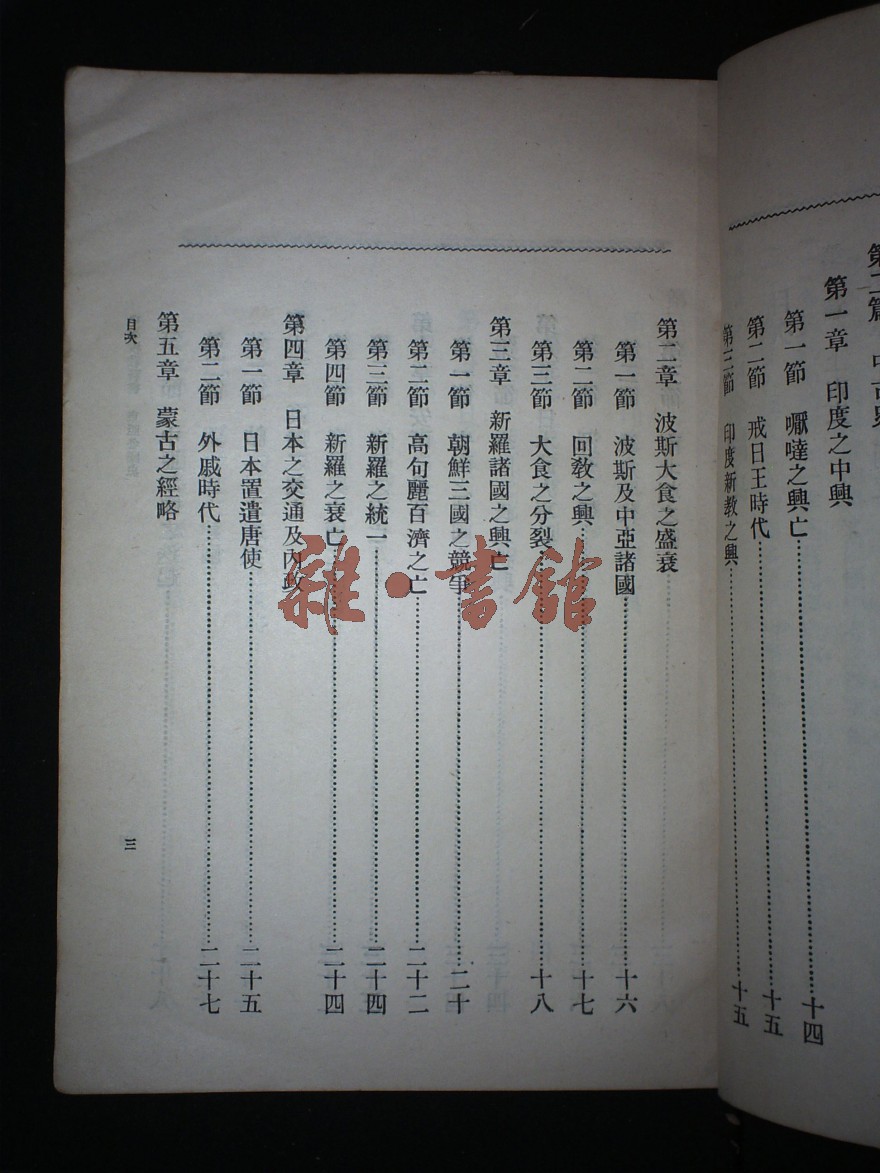 第一章　印度之中興
第一節　嚈噠之興亡……十四
第二節　戒日王時代……十五
第三節　印度新教之興……十五
第二章　波斯大食之盛衰
第一節　波斯及中亞諸國……十六
第二節　回教之興……十七
第三節　大食之分裂……十八
第三章　新羅諸國之興亡
第一節　朝鮮三國之競爭……二十
第二節　高句麗百濟之亡……二十二
第三節　新羅之統一……二十四
第四節　新羅之衰亡……二十四
第四章　日本之交通及內政
第一節　日本置遣唐使……二十五
第二節　外戚時代……二十七
第五章　蒙古之經略
目次
三
雜·書館